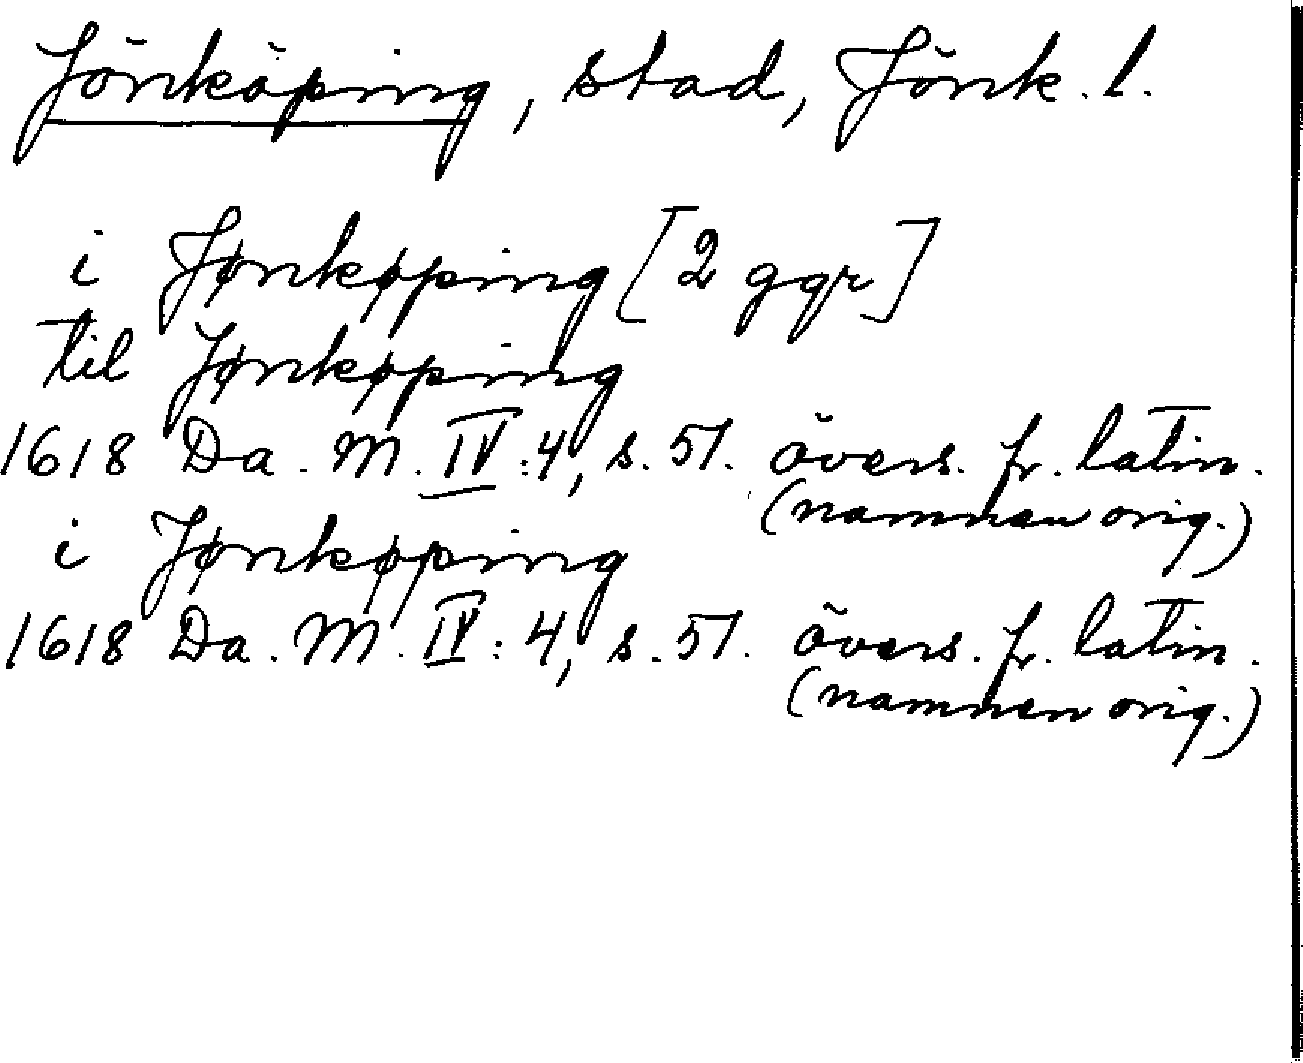 Jönköping, stad, Jönk. l.
i Jønkøping [2 ggr]
til Jønkøping
1618 Da. M. IV:4, s. 51. övers. fr. latin.
(namnen orig.)
i Jønkøping
1618 Da. M. IV:4, s. 51. övers. fr. latin.
(namnen orig.)